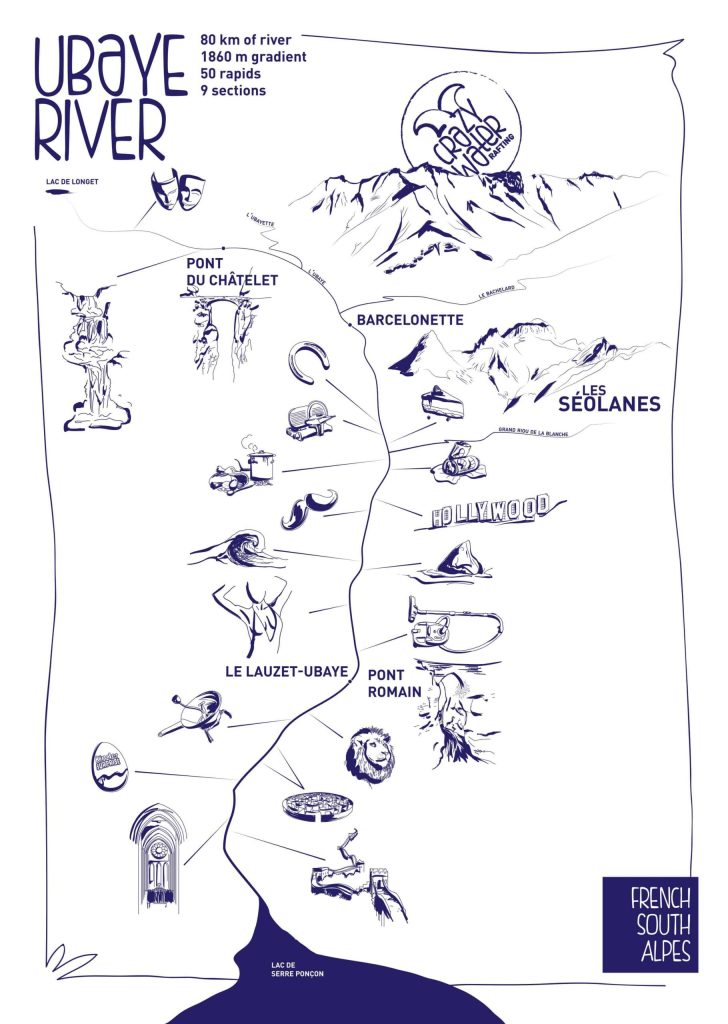 UBAYE
RIVER
80 km of river
1860 m gradient
50 rapids
9 sections
CRAZY
WATER
RAFTING
LAC DE LONGET
L'UBAYETTE
PONT
DU CHÂTELET
L'UBAYE
LE BACHELARD
BARCELONETTE
LES
SÉOLANES
GRAND RIOU DE LA BLANCHE
HOLLYWOOD
LE LAUZET-UBAYE
PONT
ROMAIN
SURPRISE
FRENCH
SOUTH
ALPES
LAC DE
SERRE PONÇON